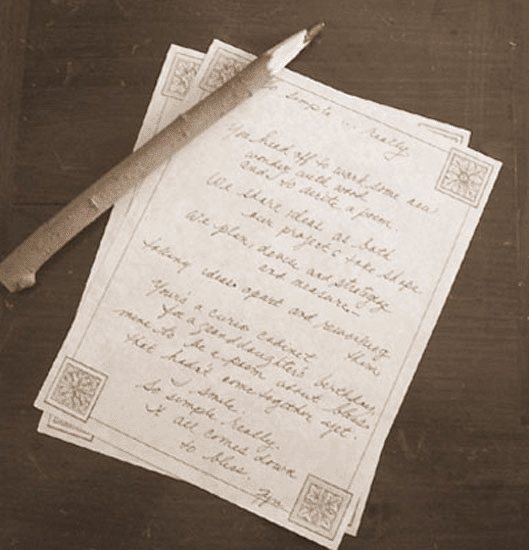 So simple ... really
You head off to work some new
wonder with wood
and I to write a poem.
We share ideas as both
our projects take shape
We plan, sketch and strategize
and measure -
taking ideas apart and reworking
them
Yours a curio cabinet
for a granddaughter's birthday,
mine to be a poem about bliss
that hadn't come together yet.
I smile.
So simple really.
It all comes down
to bliss.